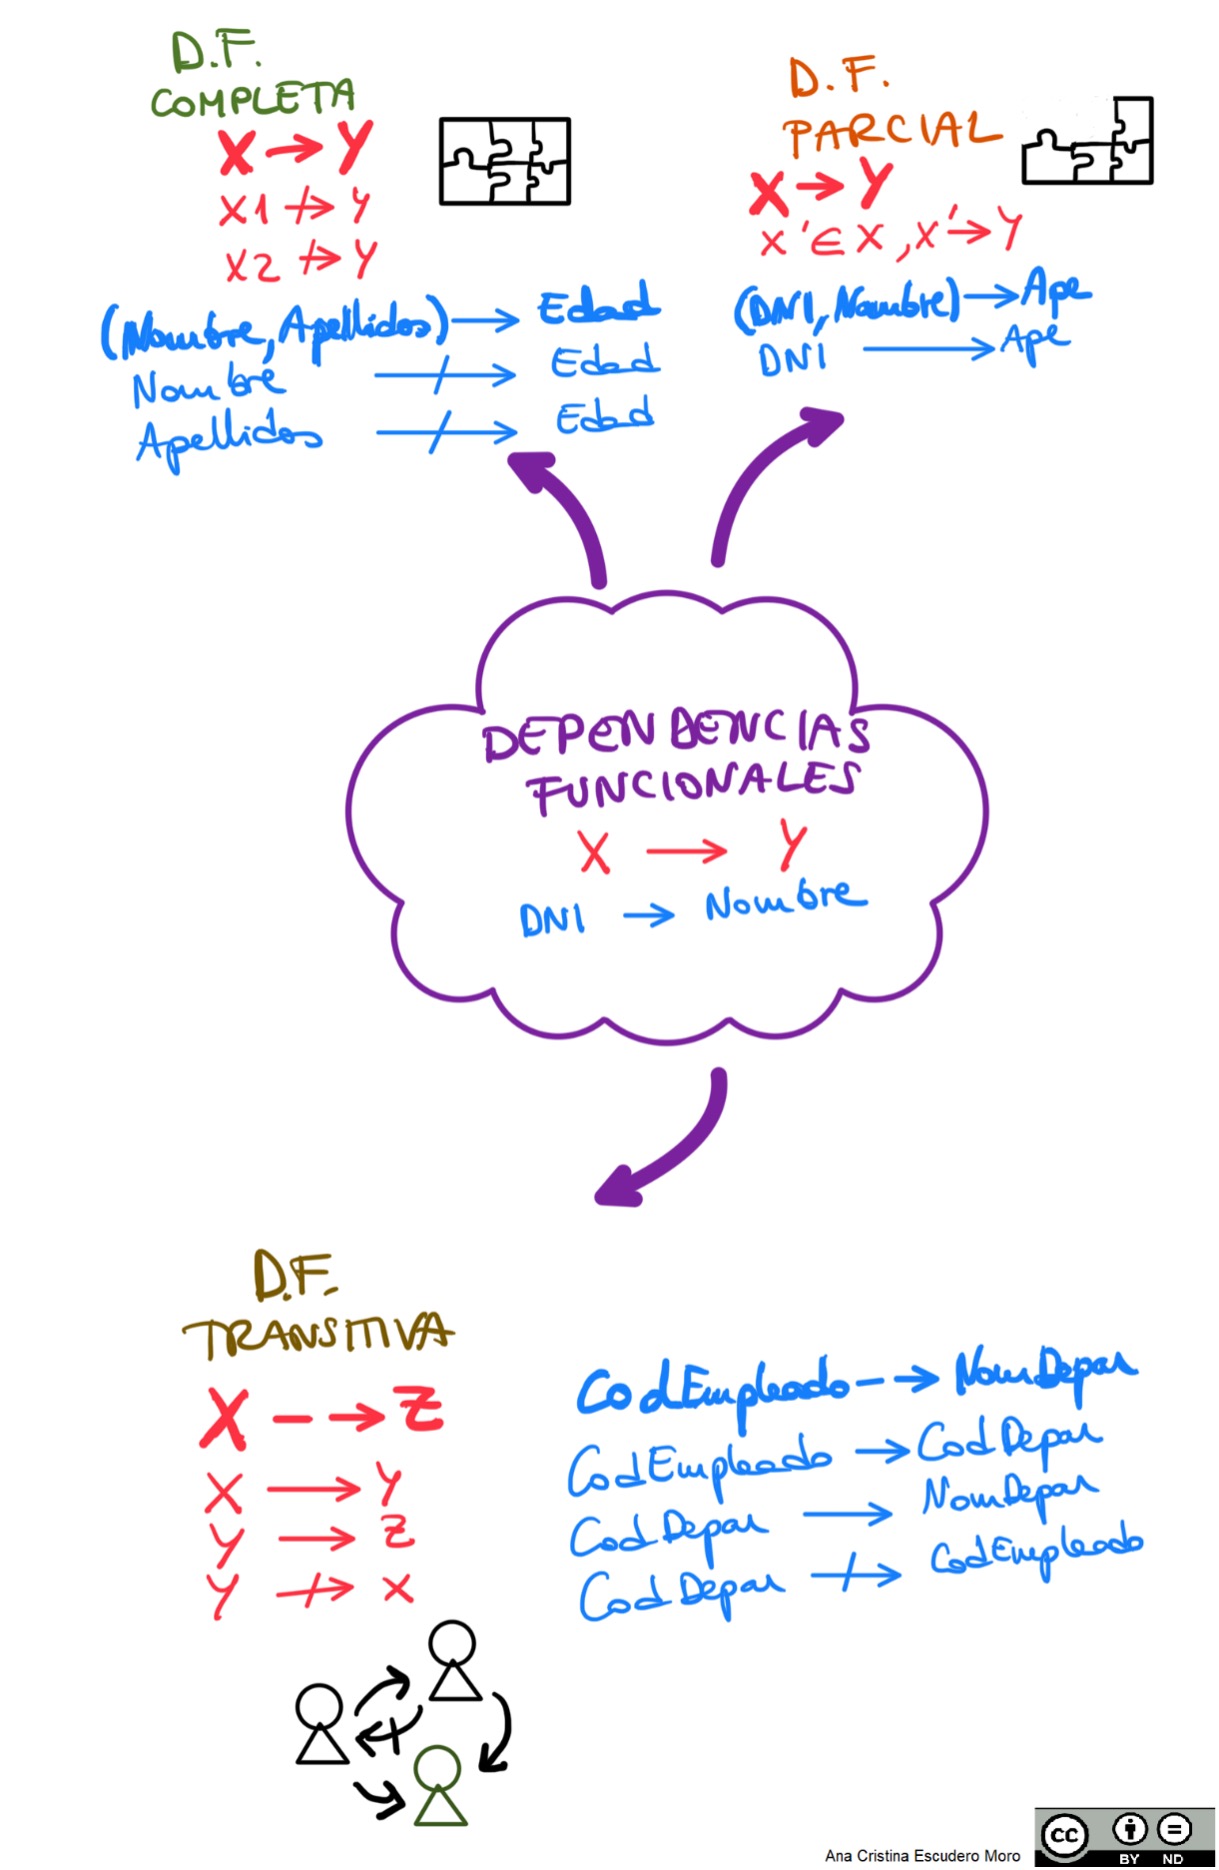 D.F.
COMPLETA
X → Y
X1 ↛ Y
X2 ↛ Y
(Nombre, Apellidos) → Edad
Nombre ↛ Edad
Apellidos ↛ Edad
D.F.
PARCIAL
X → Y
X' ∈ X, X' → Y
(DNI, Nombre) → Ape
DNI → Ape
DEPENDENCIAS
FUNCIONALES
X → Y
DNI → Nombre
D.F.
TRANSITIVA
X - → Z
X → Y
Y → Z
Y ↛ X
CodEmpleado - → NomDepar
CodEmpleado → CodDepar
CodDepar → NomDepar
CodDepar ↛ CodEmpleado
Ana Cristina Escudero Moro
cc
BY ND